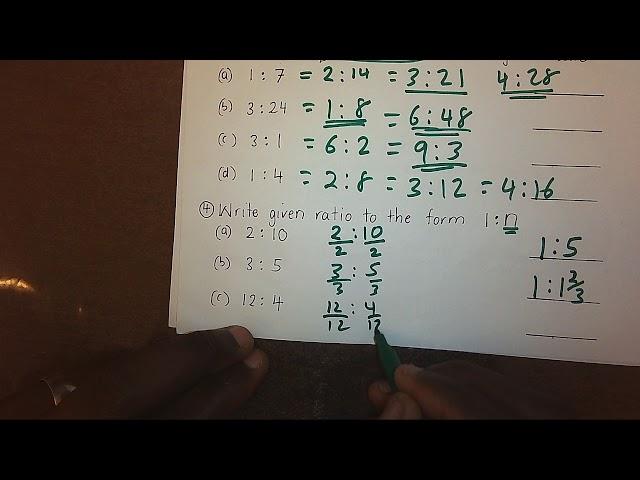 (a) 1 : 7 = 2 : 14 = 3 : 21 4 : 28
(b) 3 : 24 = 1 : 8 = 6 : 48
(c) 3 : 1 = 6 : 2 = 9 : 3
(d) 1 : 4 = 2 : 8 = 3 : 12 = 4 : 16
④ Write given ratio to the form 1 : n
(a) 2 : 10 2/2 : 10/2 1 : 5
(b) 3 : 5 3/3 : 5/3 1 : 1 2/3
(c) 12 : 4 12/12 : 4/12